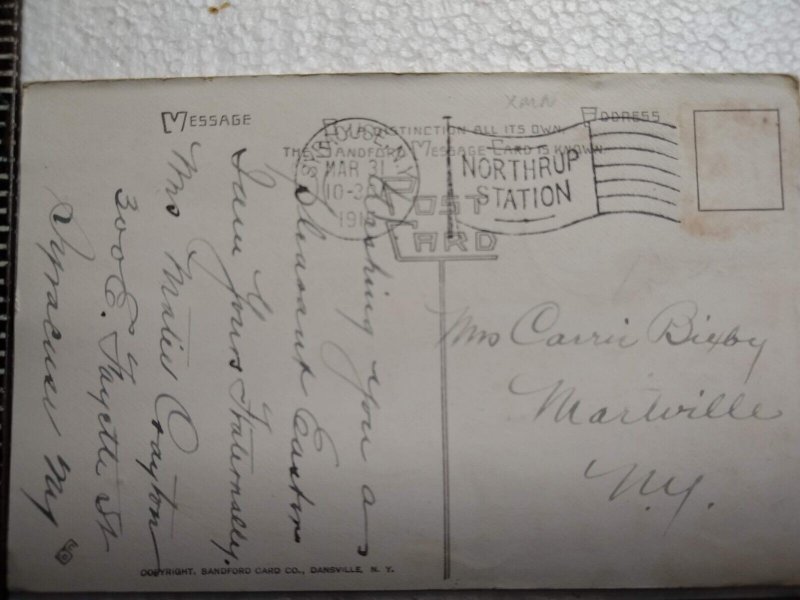 MESSAGE
ADDRESS
BY A DISTINCTION ALL ITS OWN,
THE SANDFORD MESSAGE CARD IS KNOWN.
POST
CARD
SYRACUSE N.Y.
MAR 31
10-3
191
NORTHRUP
STATION
XMN
Wishing you a
Pleasant Easter
I am Yours Fraternally.
Mrs Crayton
300 E. Fayette St
Syracuse NY
Mrs Carrie Bixby
Martville
N.Y.
COPYRIGHT. SANDFORD CARD CO., DANSVILLE, N. Y.